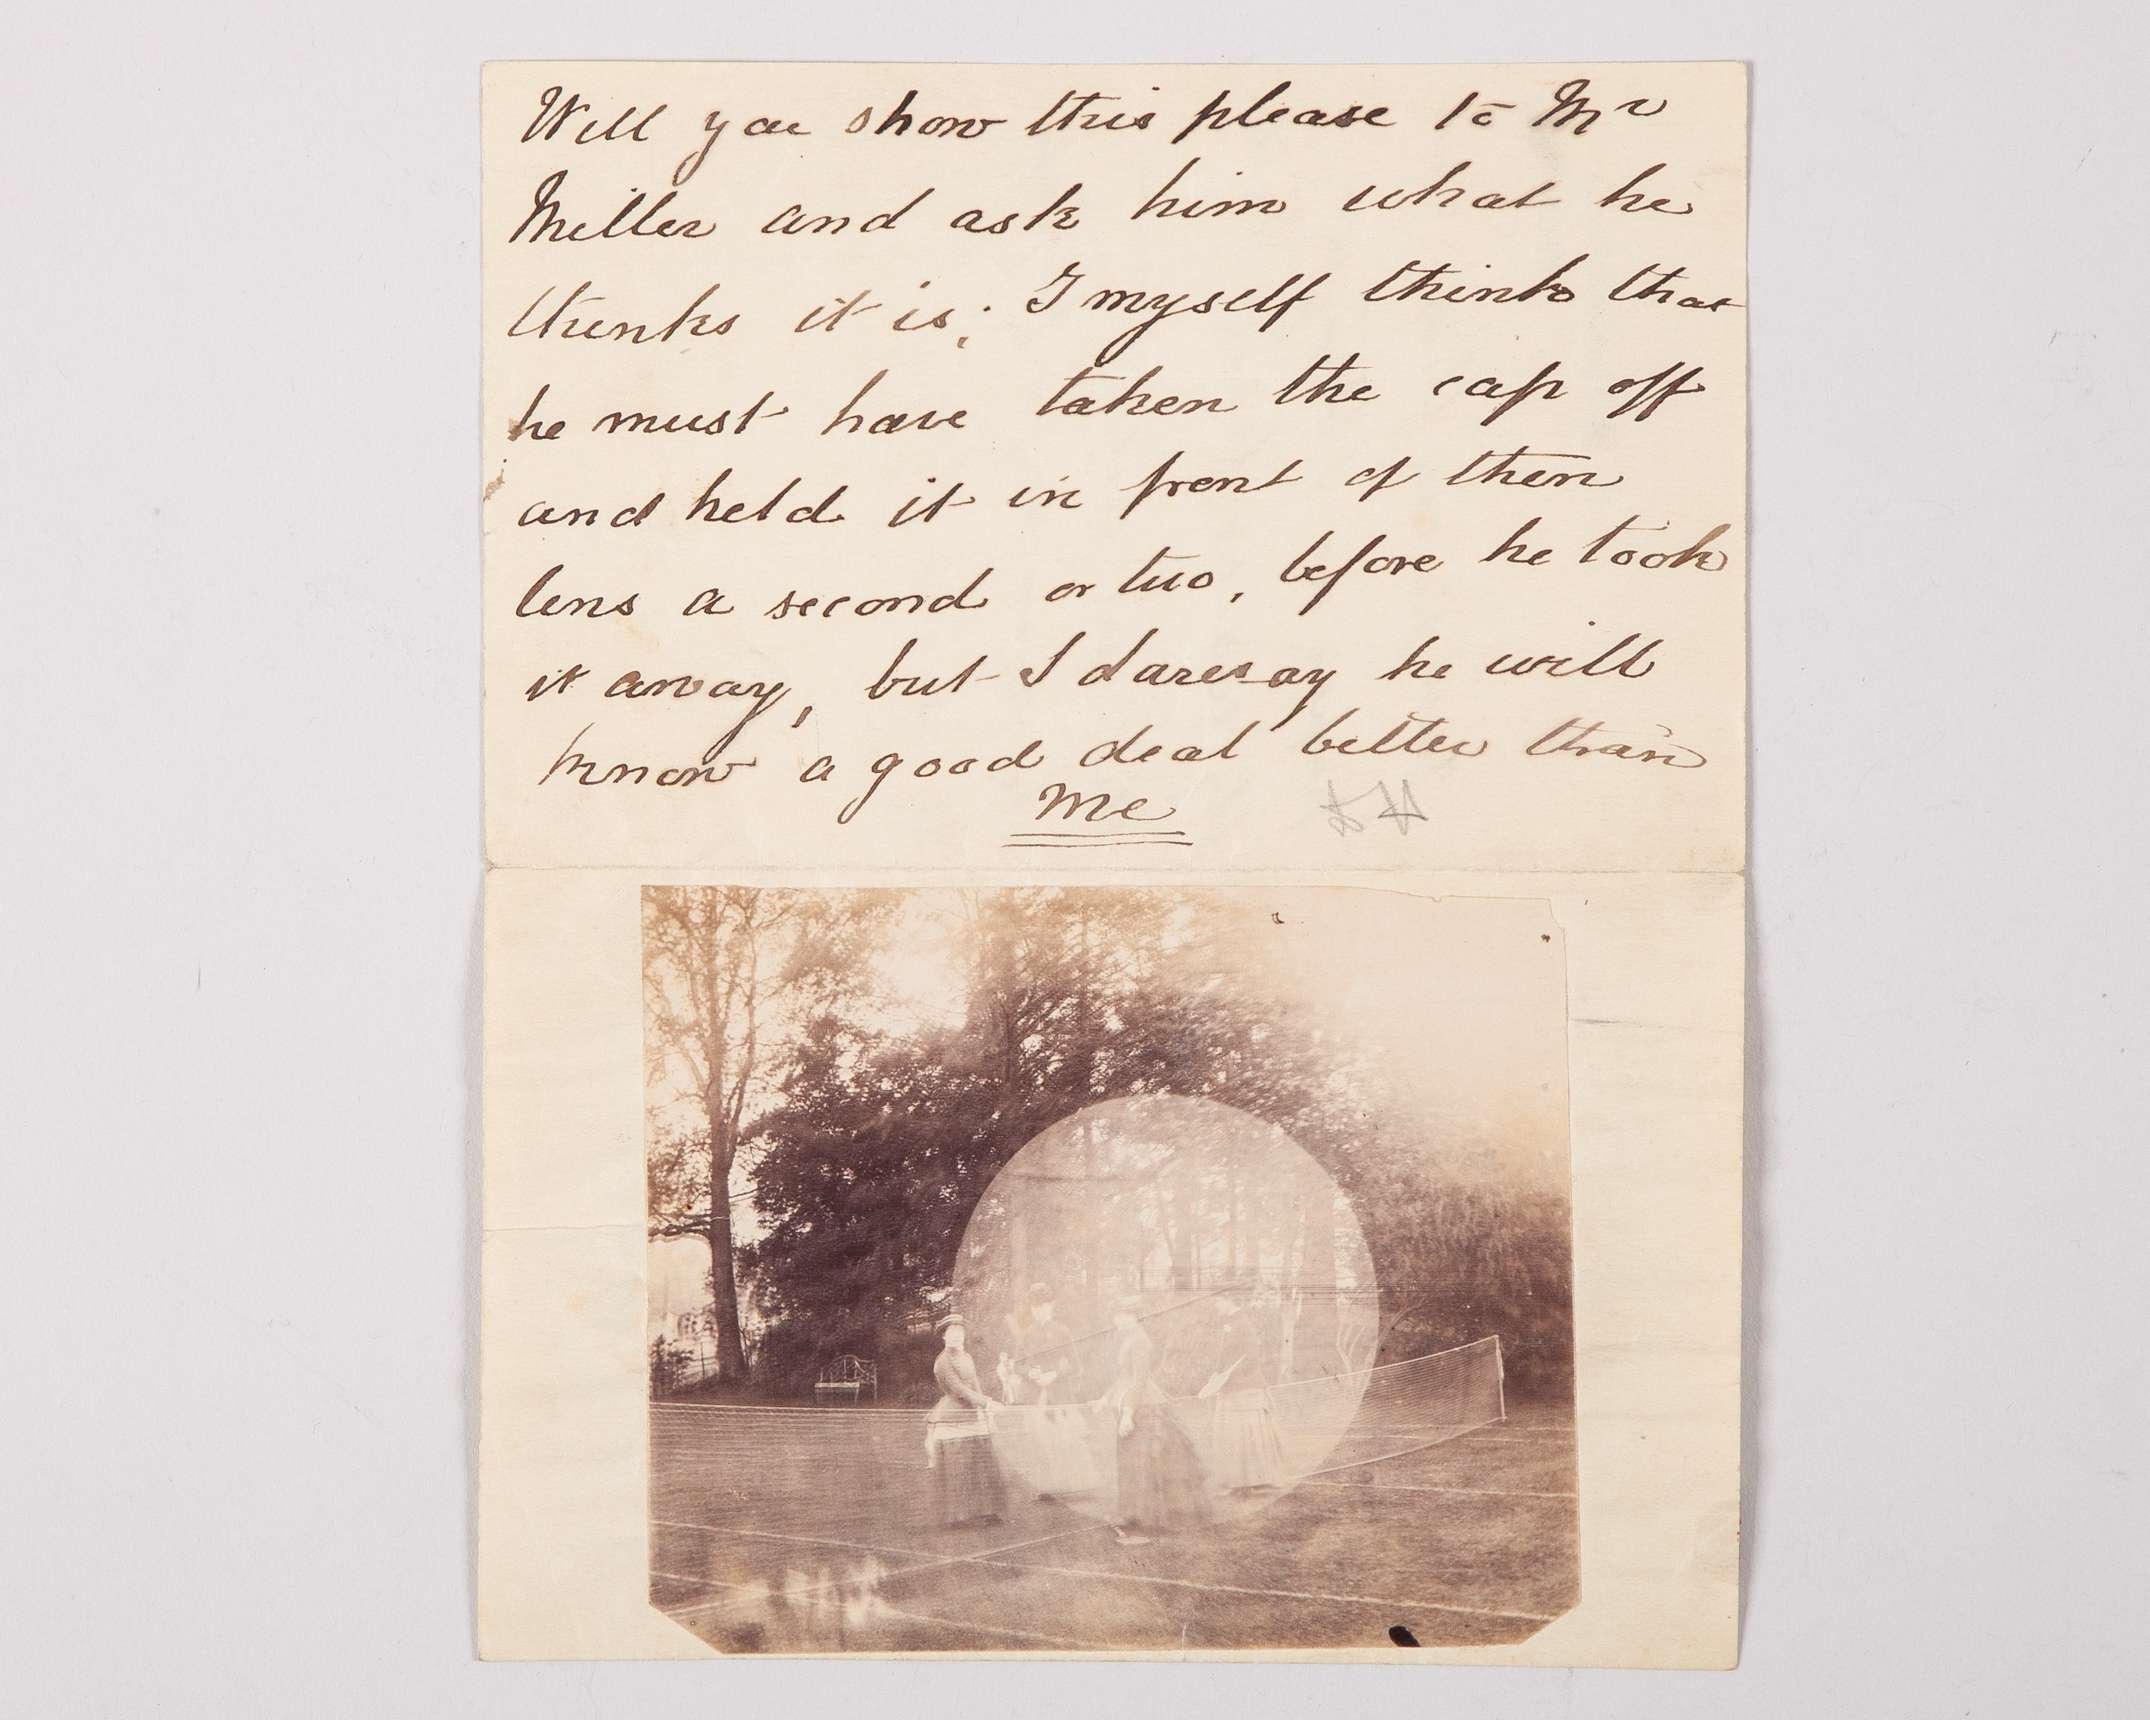 Will you show this please to Mr
Miller and ask him what he
thinks it is; I myself think that
he must have taken the cap off
and held it in front of then
lens a second or two, before he took
it away, but I daresay he will
know a good deal better than
me